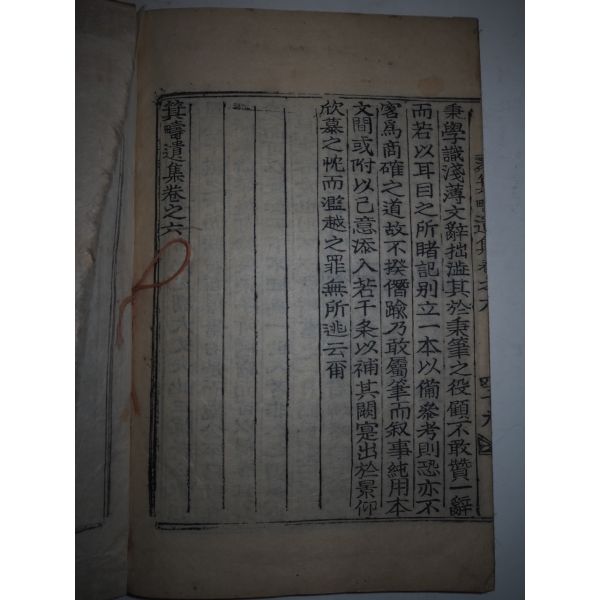 秉學識淺薄文辭拙澁其於秉筆之役顧不敢贊一辭
而若以耳目之所睹記別立一本以備參考則恐亦不
害爲商確之道故不揆僭踰乃敢屬筆而叙事純用本
文間或附以己意添入若干条以補其闕寔出於景仰
欣慕之忱而濫越之罪無所逃云甭
箕疇遺集卷之六